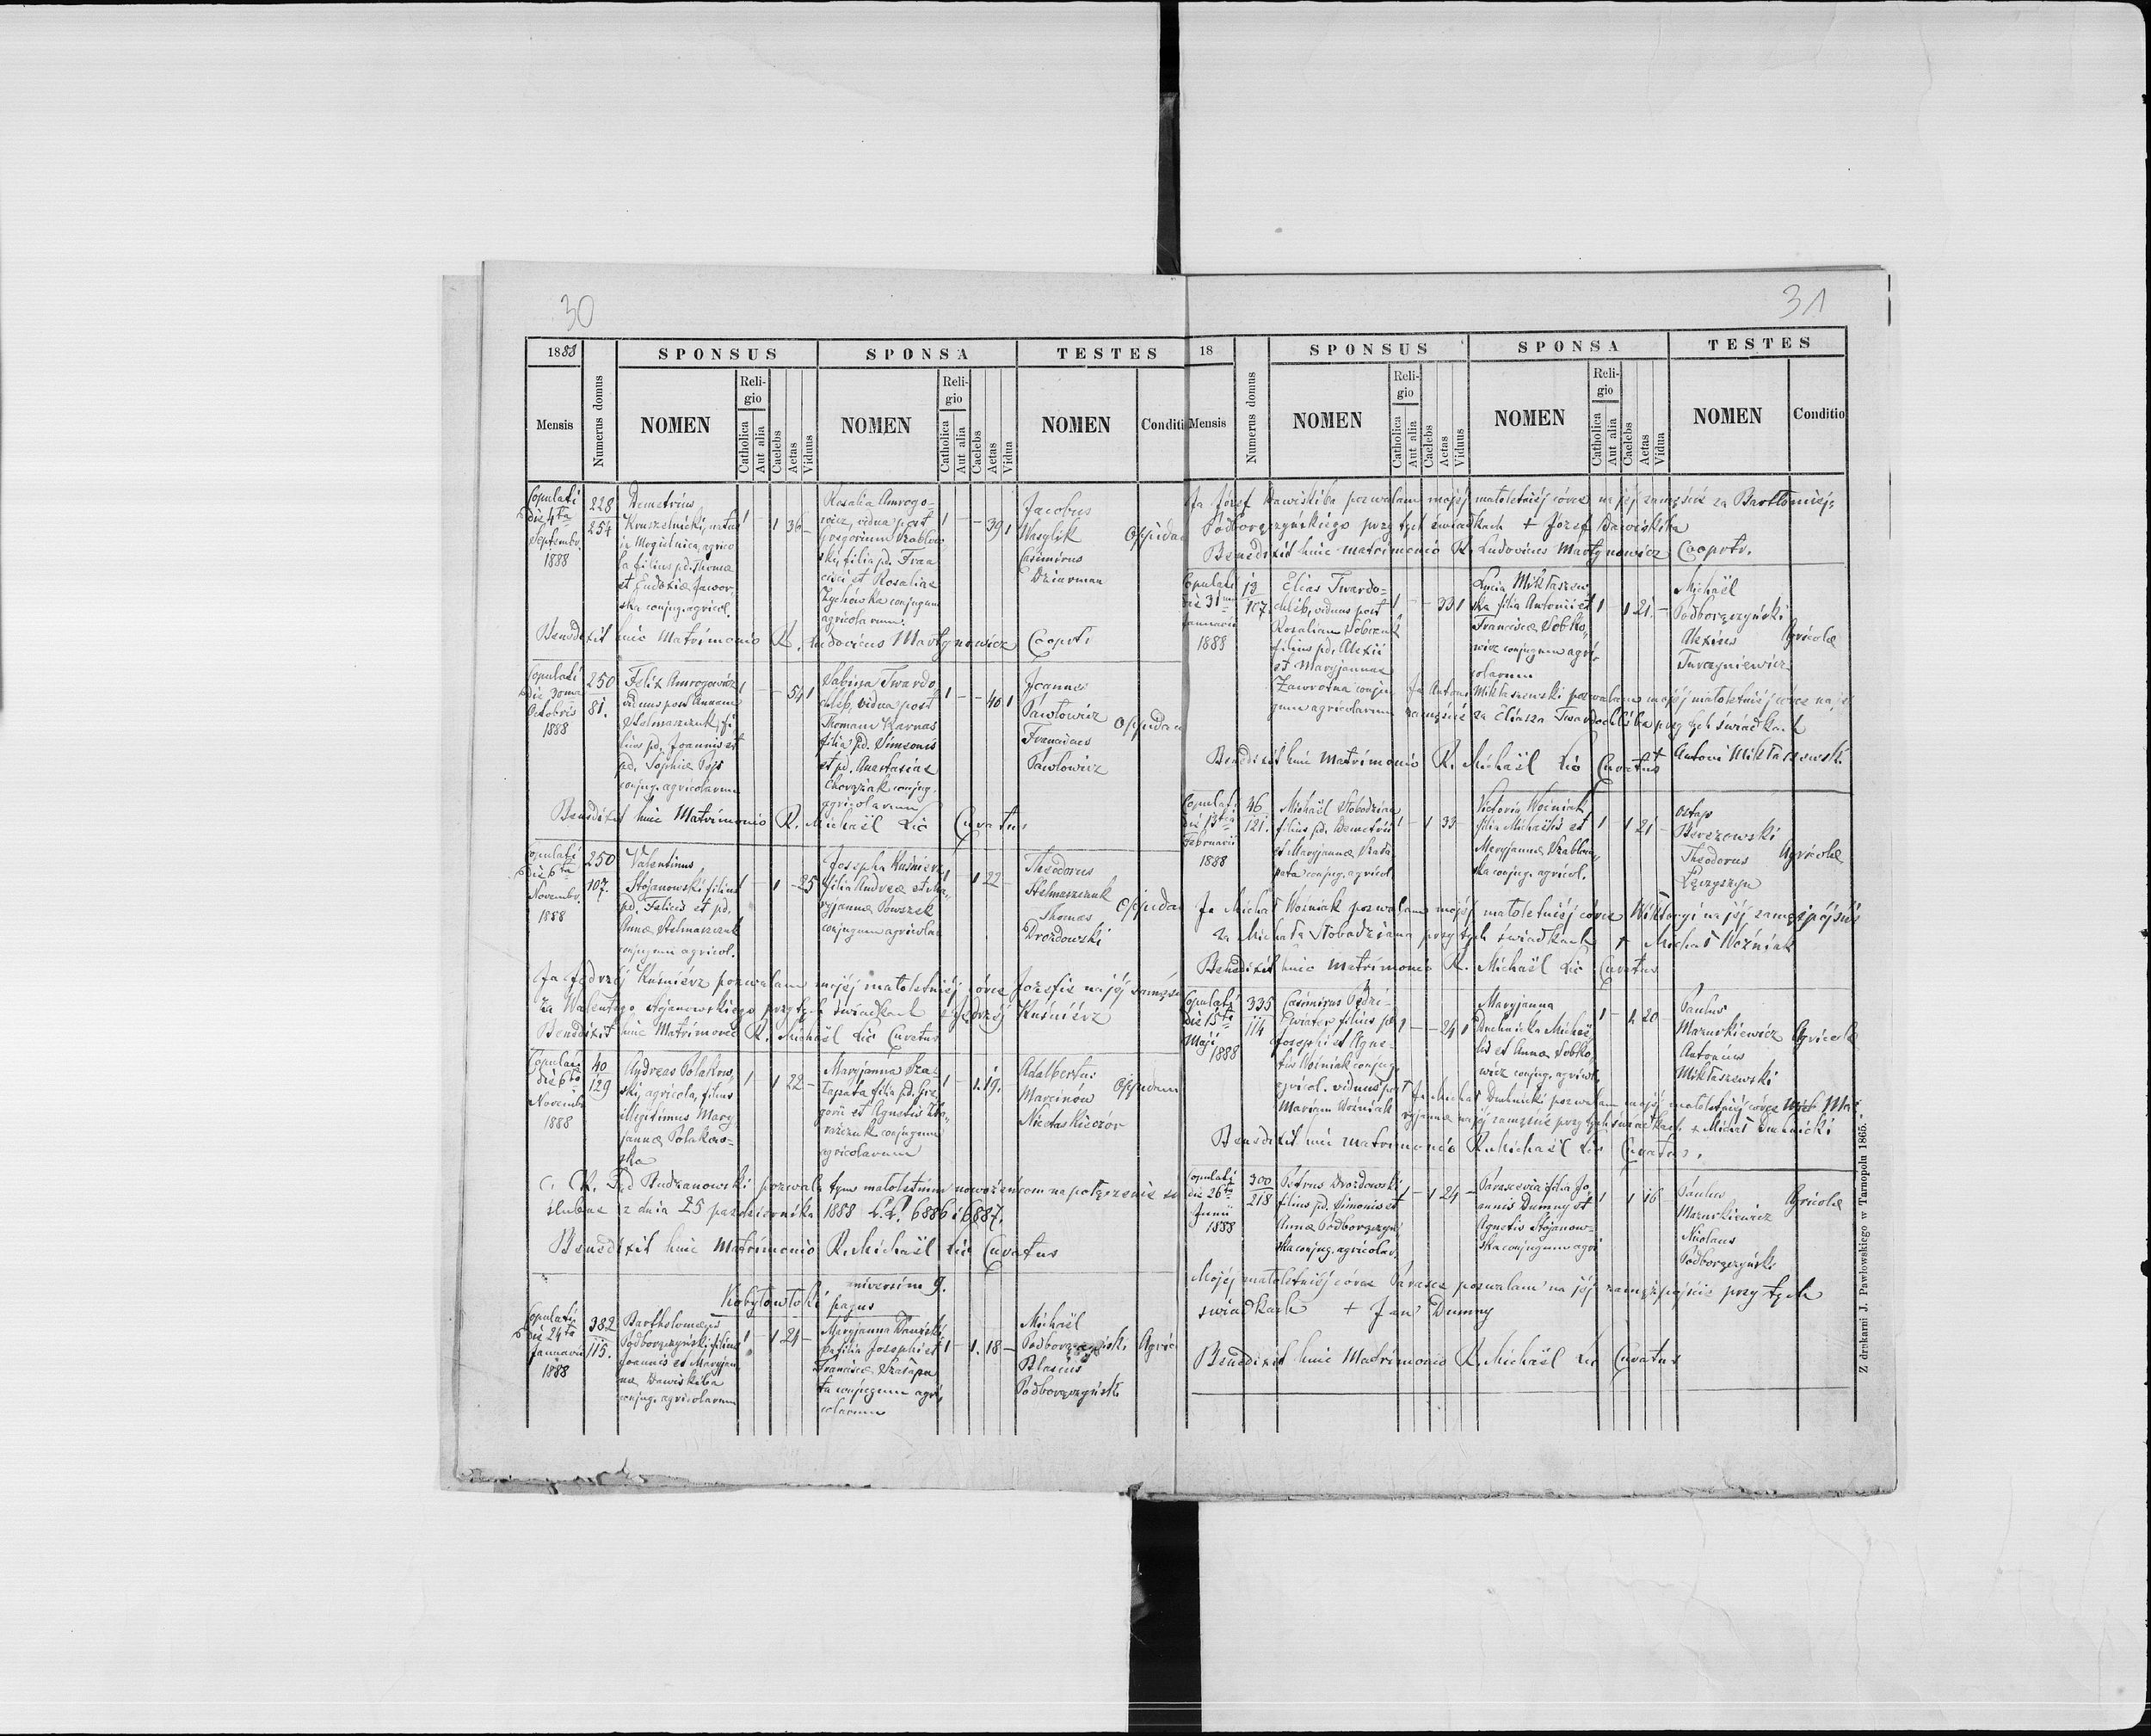 30
1888
SPONSUS
SPONSA
TESTES
Mensis
Numerus domus
NOMEN
Religio
Catholica
Aut alia
Caelebs
Aetas
Viduus
NOMEN
Religio
Catholica
Aut alia
Caelebs
Aetas
Vidua
NOMEN
Conditi
Copulati die 4ta Septembr. 1888
228
254
Demetrius
Kruszelnicki, natus
in Mogielnica, agrico
la filius pd. Thomæ
et Eudoxiæ Jawor
ska conjug. agricol.
1 - 1 36 -
Rosalia Amrogo-
wicz, vidua post
Gregorium Wrablow
ski, filia pd. Fran
cisci et Rosaliae
Zychówska conjugum
agricolarum.
1 - - 39 1
Jacobus
Wasylik
Casimirus
Dziurman
Oppidan
Benedixit huic Matrimonio R. Ludovicus Martynowicz Coopt.
Copulati die 30ma Octobris 1888
250
81.
Felix Amrogowicz
viduus post Annam
Stelmaszczuk, fi
lius pd. Joannis et
pd. Sophiæ Pojs
conjug. agricolarum
1 - - 54 1
Sabina Twardo
chleb, vidua post
Thomam Karnas
filia pd. Simeonis
et pd. Anastasiae
Chorążak conjug.
agricolarum
1 - - 40 1
Joannes
Pawłowicz
Franciscus
Pawłowicz
Oppidan
Benedixit huic Matrimonio R. Michaël Lic Curatus
Copulati die 6ta Novembr. 1888
250
107.
Valentinus
Stojanowski filius
pd. Felicis et pd.
Annæ Stelmaszczuk
conjugum agricol.
1 - 1 25
Josepha Kuśnierz
filia Andreæ et Ma
ryjannæ Powszek
conjugum agricolar
1 - 1 22 -
Theodorus
Stelmaszczuk
Thomas
Drozdowski
Oppidan
Ja Jędrzéj Kuśniérz pozwalam mojéj małoletniéj córce Józefie na jéj zamęści
za Walentego Stojanowskiego przy tych świadkach + Jędrzéj Kuśniérz
Benedixit huic Matrimonio R. Michaël Lic Curatus
Copulati die 6ta Novembr 1888
40
129
Andreas Polakow
ski, agricola, filius
illegitimus Mary
jannæ Polakow-
ska
1 1 22 -
Maryjanna Sza-
tapata filia pd. Gre
gorii et Agnetis
conjugum
agricolarum
1 - 1. 19. -
Adalbertus
Marcinów
Nicetas Kieczór
Oppidani
C. K. Sąd Budzanowski pozwala tym małoletnim nowożeńcom na połączenie się
ślubne z dnia 25 pazdziernika 1888 L.L. 6886 i 6887.
Benedixit huic Matrimonio R. Michaël Lic Curatus
universim 9.
Kobyłowłoki pagus
Copulati die 24ta Januarii 1888
382
115.
Bartholomæus
Podborączyński, filius
Joannis et Maryjan
næ Dawiskiba
conjug. agricolarum
1 - 1 24 -
Maryjanna Dawiski
ba filia Josephi et
Franciscæ Szatapa
ta conjugum agri
colarum
1 - 1. 18 -
Michaël
Podborączyński
Blasius
Podborączyński
Agric
31
18
SPONSUS
SPONSA
TESTES
Mensis
Numerus domus
NOMEN
Religio
Catholica
Aut alia
Caelebs
Aetas
Viduus
NOMEN
Religio
Catholica
Aut alia
Caelebs
Aetas
Vidua
NOMEN
Conditio
Ja Józef Dawiskiba pozwalam mojéj małoletniéj córce na jéj zamęście za Bartłomieja
Podborączyńskiego przy tych świadkach + Józef Dawiskiba
Benedixit huic matrimonio R. Ludovicus Martynowicz Cooprtr.
Copulati die 31ma Januarii 1888
13
107.
Elias Twardo-
chléb, viduus post
Rosaliam Sobczuk
filius pd. Alexii
et Maryjannae
Zawrotna conju
gum agricolarum
1 - - 33 1
Lucia Miktaszew
ska filia Antonii et
Franciscæ Sobko,
wicz conjugum agri,
colarum
1 - 1 21. -
Michaël
Podborączyński
Alexius
Turczyniewicz
Agricolæ
Ja Antoni Miktaszewski pozwalam mojéj małoletniéj córce na jéj
zamęście za Eliasza Twardochléba przy tych świadkach
Antoni Miktaszewski
Benedixit huic Matrimonio R. Michaël Lic Curatus
Copulati die 13tia Februarii 1888
46
121.
Michaël Słobodzian
filius pd. Demetrii
et Maryjannæ Szata
pata conjug. agricol
1 - 1 33 -
Victoria Woźniak
filia Michaëlis et
Maryjannæ Wrablow,
ska conjug. agricol.
1 - 1 21 -
Ostap
Berezowski
Theodorus
Łęczyszyn
Agricolæ
Ja Michał Woźniak pozwalam mojéj małoletniéj córce Wiktoryi na jéj zamężpójście
za Michała Słobodziana przy tych świadkach + Michał Woźniak
Benedixit huic matrimonio R. Michaël Lic Curatus
Copulati die 15ta Maji 1888
335
114
Casimirus Pędzi-
wiater filius pd.
Josephi et Agne-
tis Woźniak conjug.
agricol. viduus post
Mariam Woźniak
1 - - 24 1
Maryjanna
Duchnicka Michaë
lis et Annæ Sobko,
wicz conjug. agricol.
1 - 1 20
Paulus
Mazurkiewicz
Antonius
Miktaszewski
Agricolæ
Ja Michał Duchnicki pozwalam mojéj małoletniéj córce Ma
ryjannie na jéj zamęście przy tych świadkach + Michał Duchnicki
Benedixit huic matrimonio R. Michaël Lic Curatus.
Copulati die 26ta Junii 1888
300
218
Petrus Drozdowski
filius pd. Simonis et
Annæ Podborączyń,
ska conjug. agricolar.
1 - 1 24 -
Parascevia filia Jo
annis Dumny et
Agnetis Stojanow-
ska conjugum agri
1 1 18 -
Paulus
Mazurkiewicz
Nicolaus
Podborączyński
Agricolæ
Mojéj małoletniéj córce Parasce pozwalam na jéj zamężpójście przy tych
świadkach + Jan Dumny
Benedixit huic Matrimonio R. Michaël Lic Curatus
Z drukarni J. Pawłowskiego w Tarnopolu 1865.